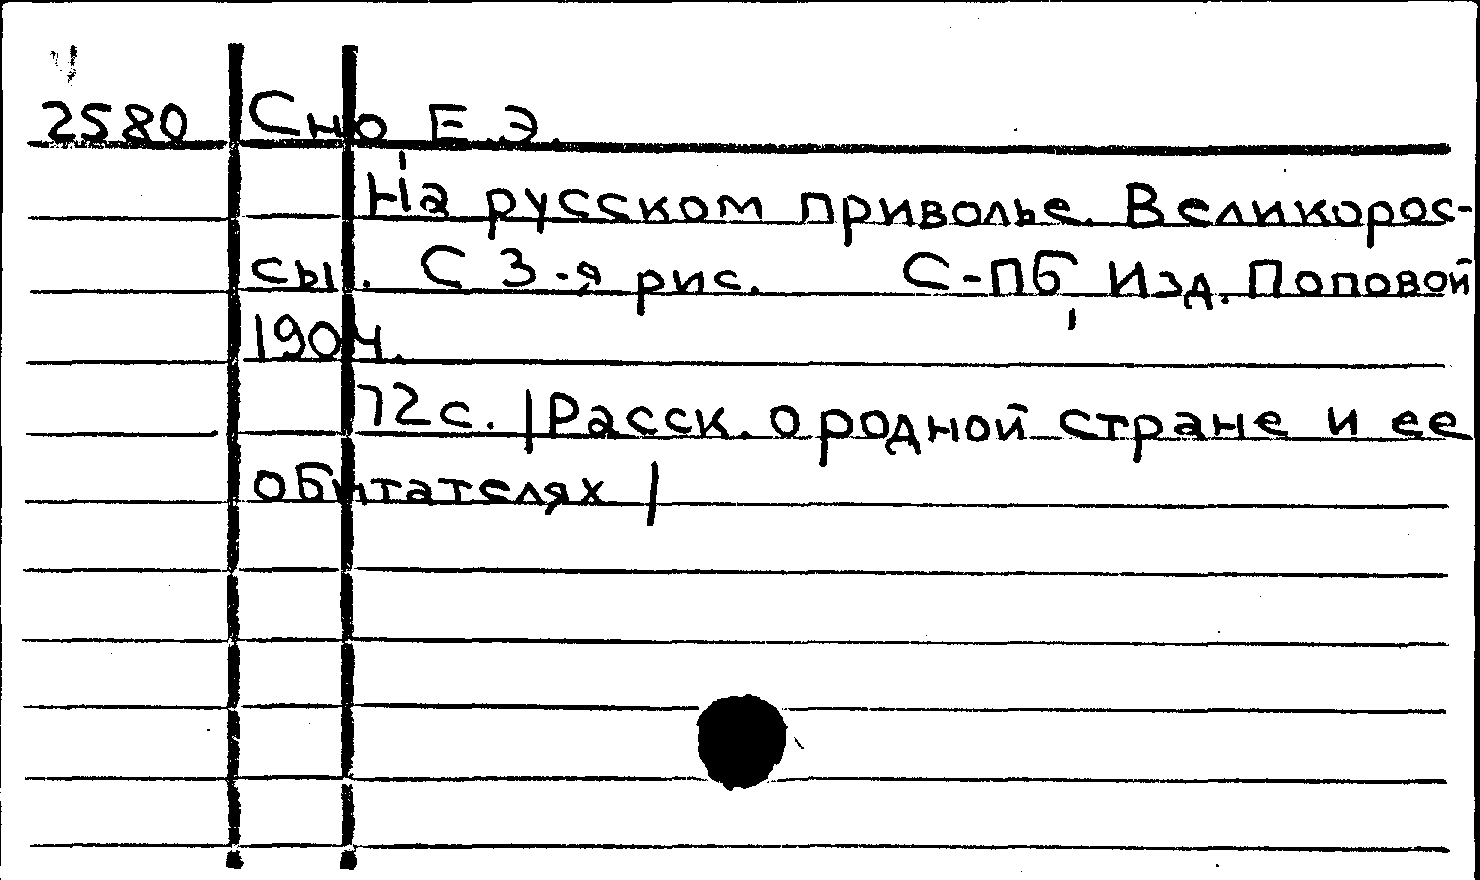 2580 Сно Е.Э.
На русском приволье. Великорос-
сы. С 3-я рис. С-Пб, Изд. Поповой
1904.
72с. |Расск. о родной стране и ее
обитателях|